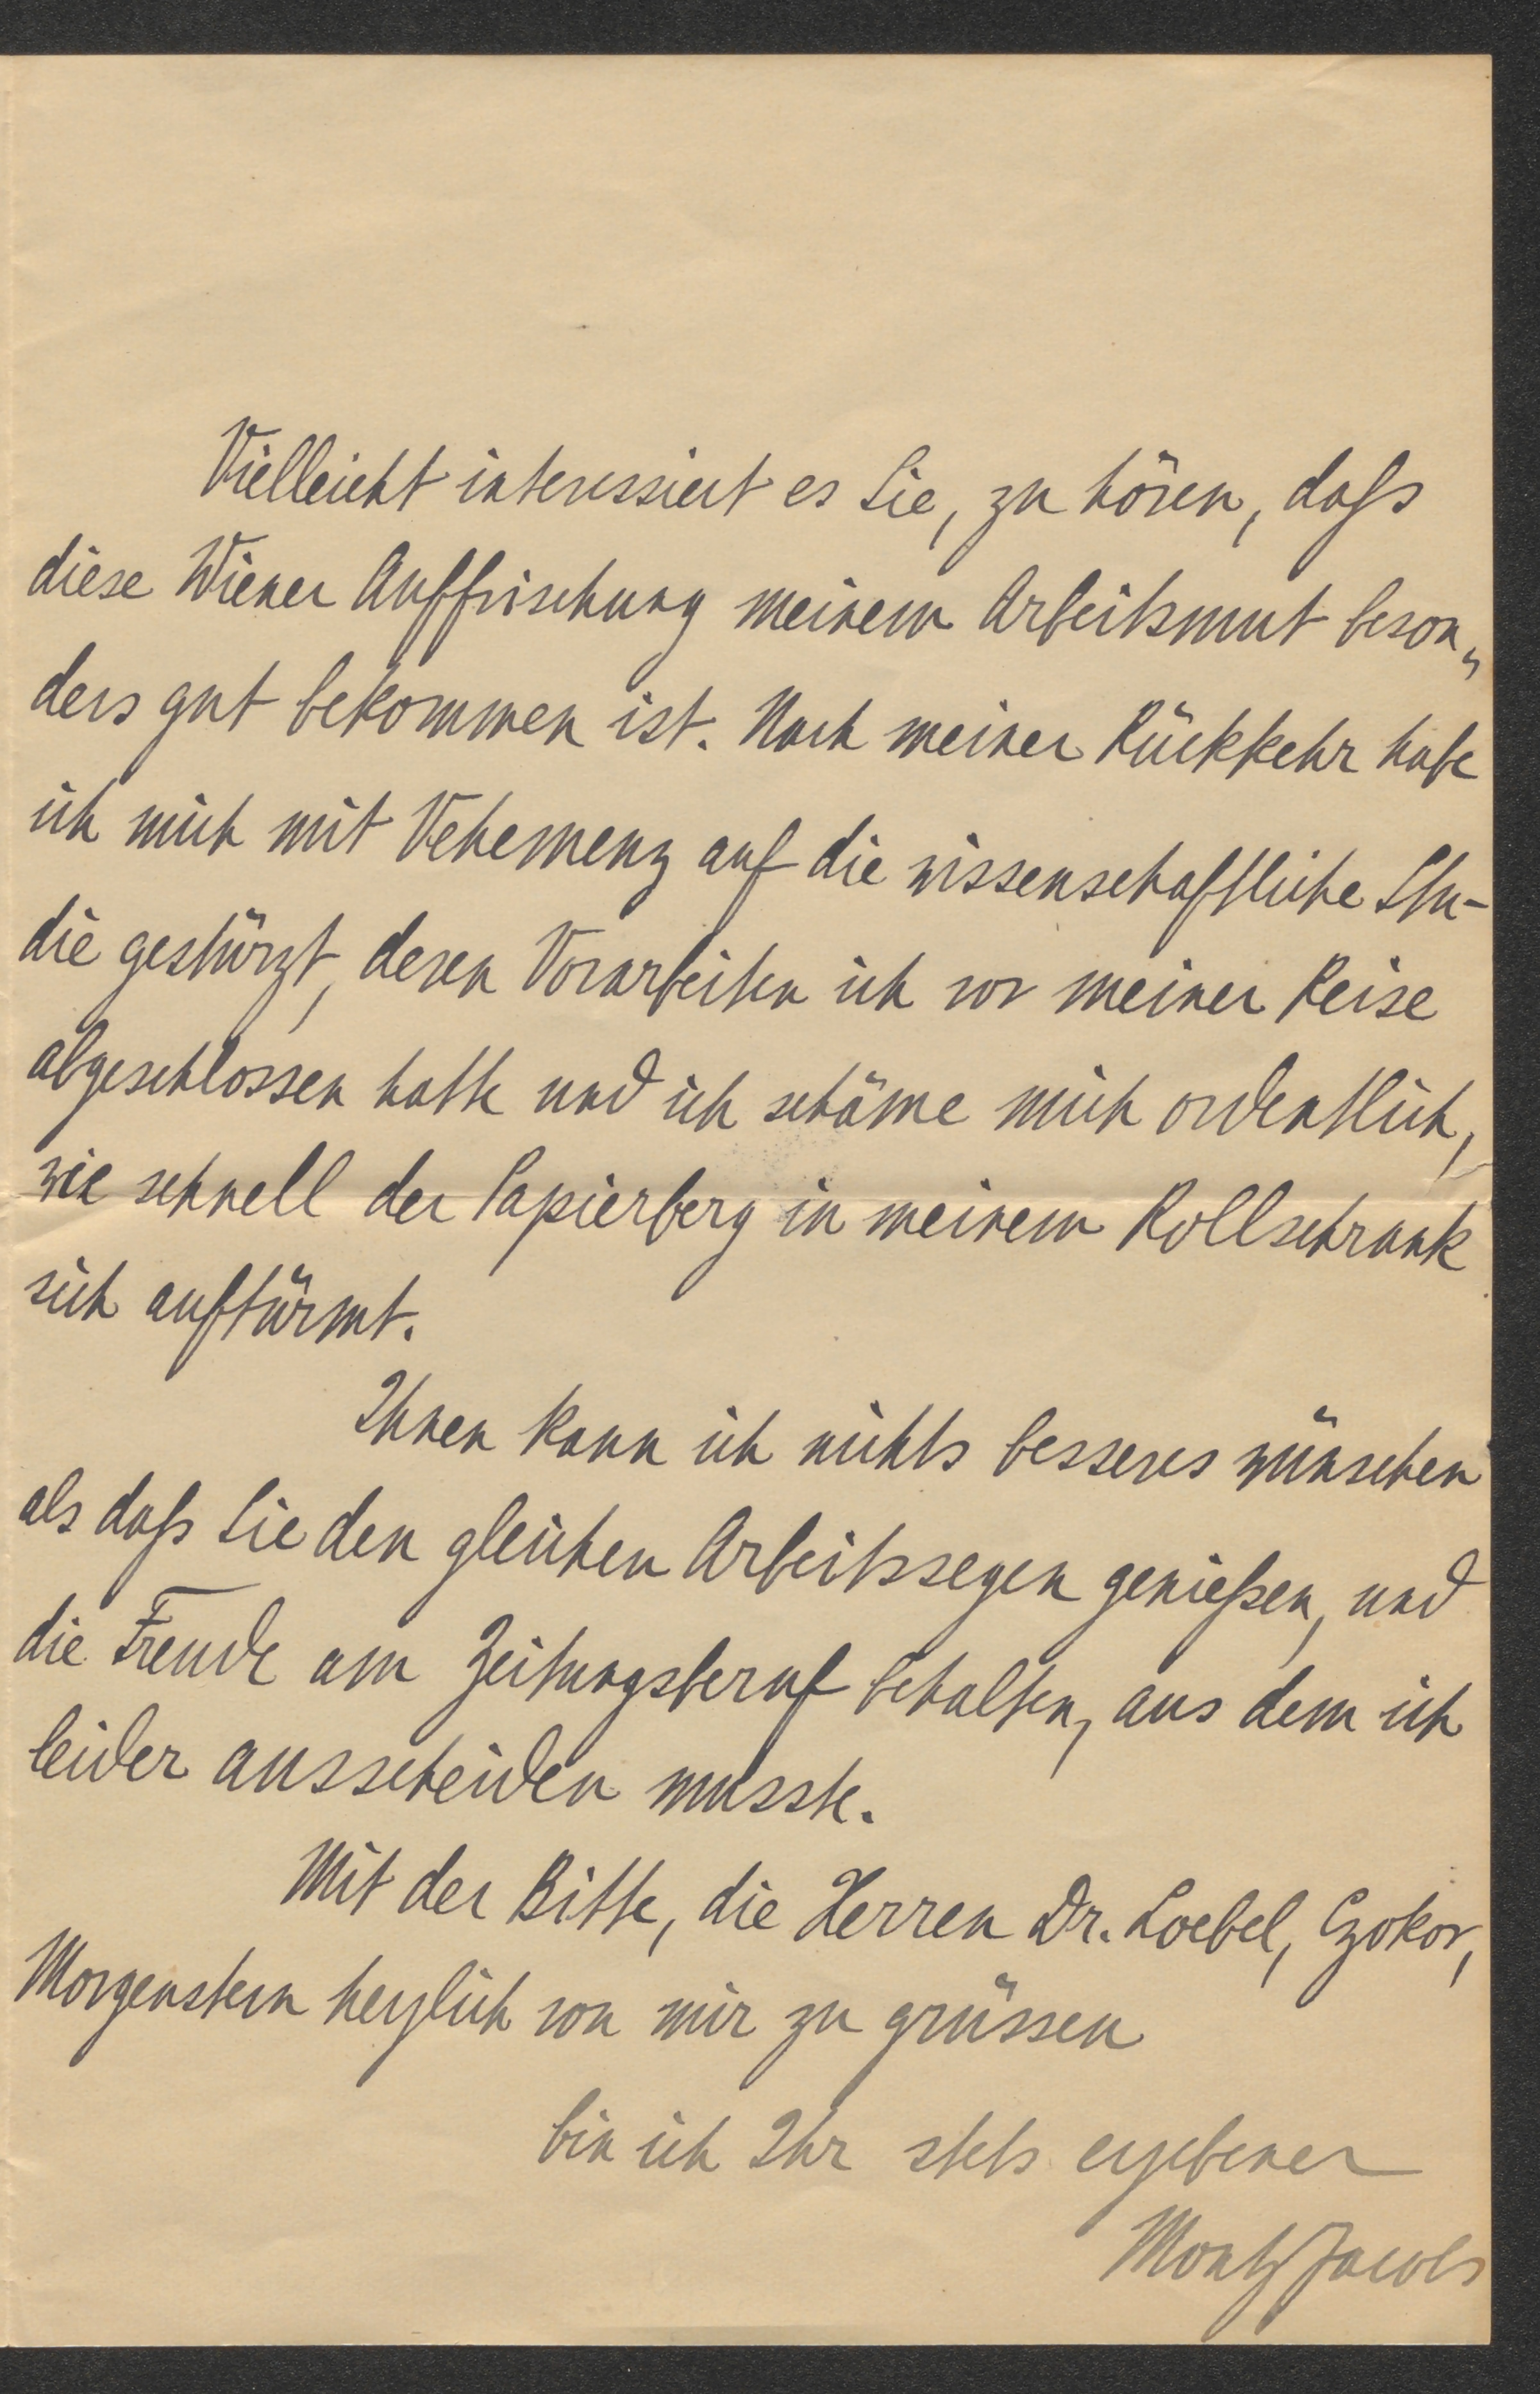 Vielleicht interessiert es Sie, zu hören, daß
diese Wiener Auffrischung meinem Arbeitsmut beson„
ders gut bekommen ist. Nach meiner Rückkehr habe
ich mich mit Vehemenz auf die wissenschaftliche Stu-
die gestürzt, deren Vorarbeiten ich vor meiner Reise
abgeschlossen hatte und ich schäme mich ordentlich,
wie schnell der Papierberg in meinem Rollschrank
sich auftürmt.
Ihnen kann ich nichts besseres wünschen
als daß Sie den gleichen Arbeitssegen genießen, und
die Freude am Zeitungsberuf behalten, aus dem ich
leider ausscheiden musste.
Mit der Bitte, die Herren Dr. Loebel, Czokor,
Morgenstern herzlich von mir zu grüssen
bin ich Ihr stets ergebener
Monty Jacobs